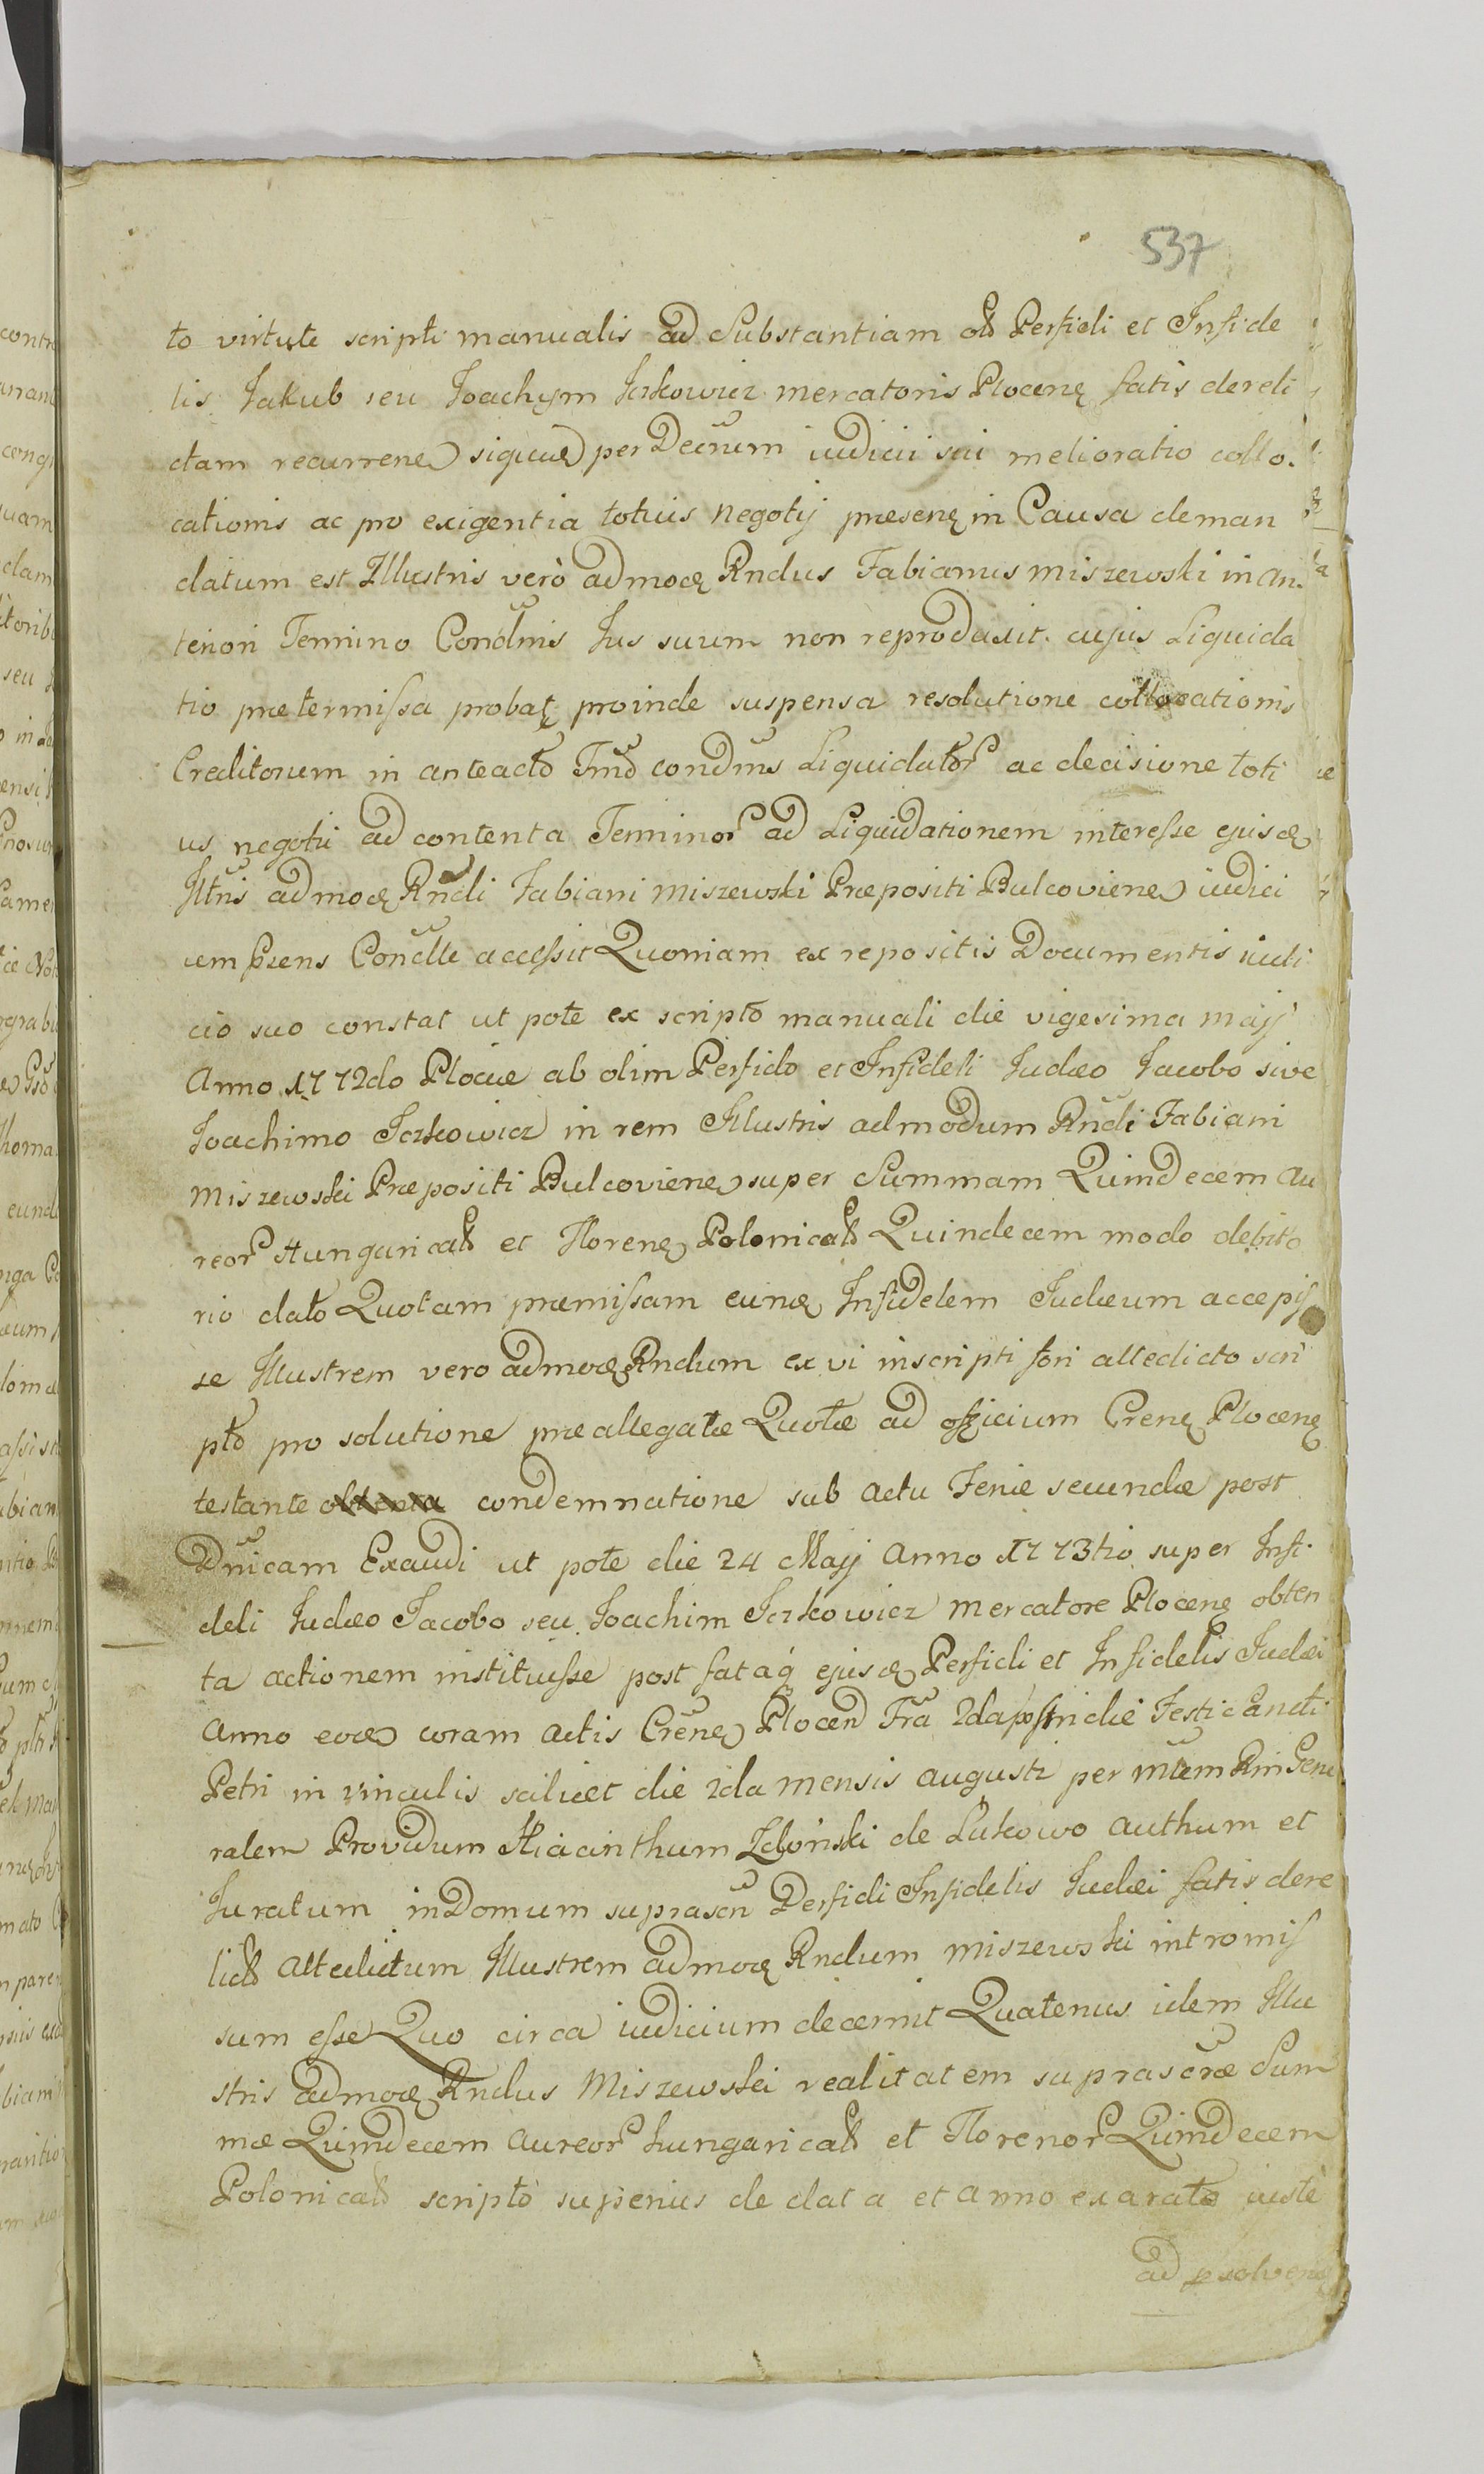 537
to virtute scripti manualis ad Substantiam olim Perfidi et Infide
lis Jakub seu Joachym Jczkowicz mercatoris Plocen fatis dereli
ctam recurren siquid per Decrum iudicii sui melioratio collo.
cationis ac pro exigentia totius negotij præsen in Causa deman
datum est Illustris verò admod Rndus Fabianus Miszewski in an.
teriori Termino Condnis Jus suum non reproduxit. cujus Liquida
tio prætermissa probat proinde suspensa resolutione collocationis
Creditorum in anteacto Tmo condnis Liquidator ac decisione toti
us negotii ad contenta Terminor ad Liquidationem interesse ejusd
Illris admod Rndi Fabiani Miszewski Præpositi Bulcovien iudici
um præns Condlle accessit Quoniam ex repositis Documentis iudi
cio suo constat ut pote ex scripto manuali die vigesima maji
Anno 1772do Plociæ ab olim Perfido et Infideli Judæo Jacobo sive
Joachimo Jczkowicz in rem Illustris admodum Rndi Fabiani
Miszewski Præpositi Bulcovien super Summam Quindecem Au
reor Hungarical et Floren Polonical Quindecem modo debito
rio dato Quotam præmissam eund Infidelem Judæum accepis
se Illustrem vero admod Rndum ex vi inscripti fori attedicto scri
pto pro solutione præallegatæ Quotæ ad officium Cren Plocen
testante obtenta condemnatione sub actu Feriæ secundæ post
Dnicam Exaudi ut pote die 24 Maij Anno 1773tio super Infi
deli Judæo Jacobo seu Joachim Jczkowicz mercatore Plocen obten
ta actionem instituisse post fataq ejusd Perfidi et Infidelis Judæi
Anno eod coram actis Cren Plocen Fra 2da postridie Festi Sancti
Petri in vinculis scilicet die 2da mensis augusti per Mrem Rni Gene
ralem Providum Hiacinthum Zdonski de Lukowo Authum et
Juratum in Domum suprascri Perfidi Infidelis Judæi fatis dere
licti attedictum Illustrem admod Rndum Miszewski intromis
sum esse Quo circa iudicium decernit Quatenus idem Illu
stris admod Rndus Miszewski realitatem suprascræ Sum
mæ Quindecem Aureor hungarical et Florenor Quindecem
Polonical scripto superius de data et anno exarato iuste
ad psolven